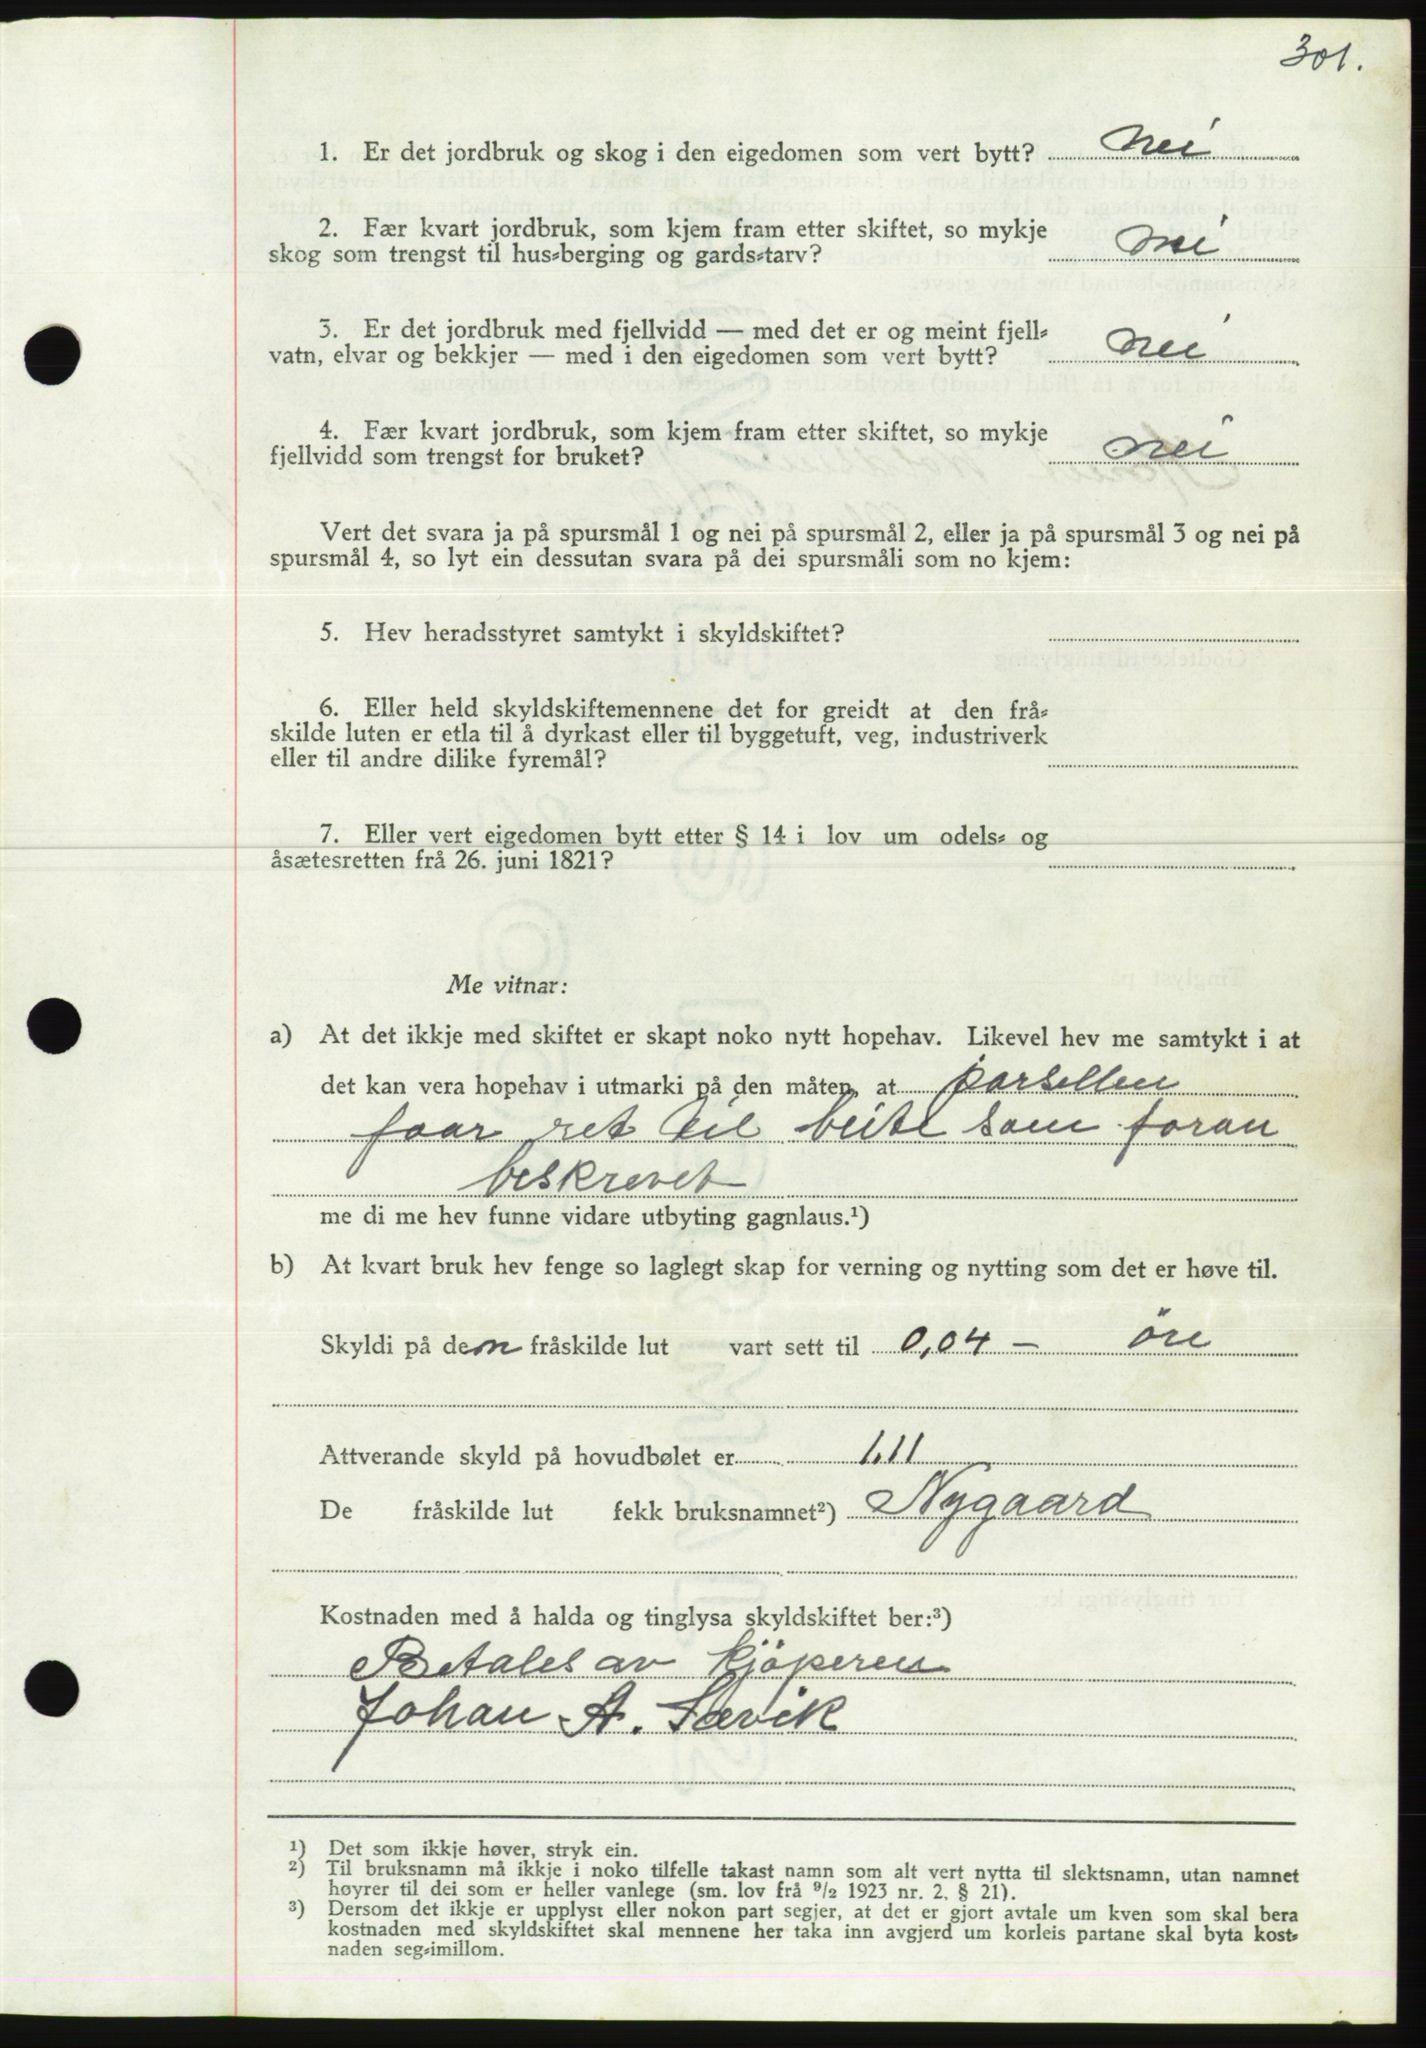 301.
1. Er det jordbruk og skog i den eigedomen som vert bytt? nei
2. Fær kvart jordbruk, som kjem fram etter skiftet, so mykje
skog som trengst til hus-berging og gards-tarv? nei
3. Er det jordbruk med fjellvidd — med det er og meint fjell-
vatn, elvar og bekkjer — med i den eigedomen som vert bytt? nei
4. Fær kvart jordbruk, som kjem fram etter skiftet, so mykje
fjellvidd som trengst for bruket? nei
Vert det svara ja på spursmål 1 og nei på spursmål 2, eller ja på spursmål 3 og nei på
spursmål 4, so lyt ein dessutan svara på dei spursmåli som no kjem:
5. Hev heradsstyret samtykt i skyldskiftet?
6. Eller held skyldskiftemennene det for greidt at den frå-
skilde luten er etla til å dyrkast eller til byggetuft, veg, industriverk
eller til andre dilike fyremål?
7. Eller vert eigedomen bytt etter § 14 i lov um odels- og
åsætesretten frå 26. juni 1821?
Me vitnar:
a) At det ikkje med skiftet er skapt noko nytt hopehav. Likevel hev me samtykt i at
det kan vera hopehav i utmarki på den måten at parsellen
faar ret til beite som foran
beskrevet
me di me hev funne vidare utbyting gagnlaus.¹)
b) At kvart bruk hev fenge so laglegt skap for verning og nytting som det er høve til.
Skyldi på den fråskilde lut vart sett til 0,04 – öre
Attverande skyld på hovudbølet er 1.11
De fråskilde lut fekk bruksnamnet²) Nygaard
Kostnaden med å halda og tinglysa skyldskiftet ber:³)
Betales av kjöperen
Johan A. Sævik
¹) Det som ikkje høver, stryk ein.
²) Til bruksnamn må ikkje i noko tilfelle takast namn som alt vert nytta til slektsnamn, utan namnet
høyrer til dei som er heller vanlege (sm. lov frå 9/2 1923 nr. 2, § 21).
³) Dersom det ikkje er upplyst eller nokon part segjer, at det er gjort avtale um kven som skal bera
kostnaden med skyldskiftet skal mennene her taka inn avgjerd um korleis partane skal byta kost-
naden seg-imillom.